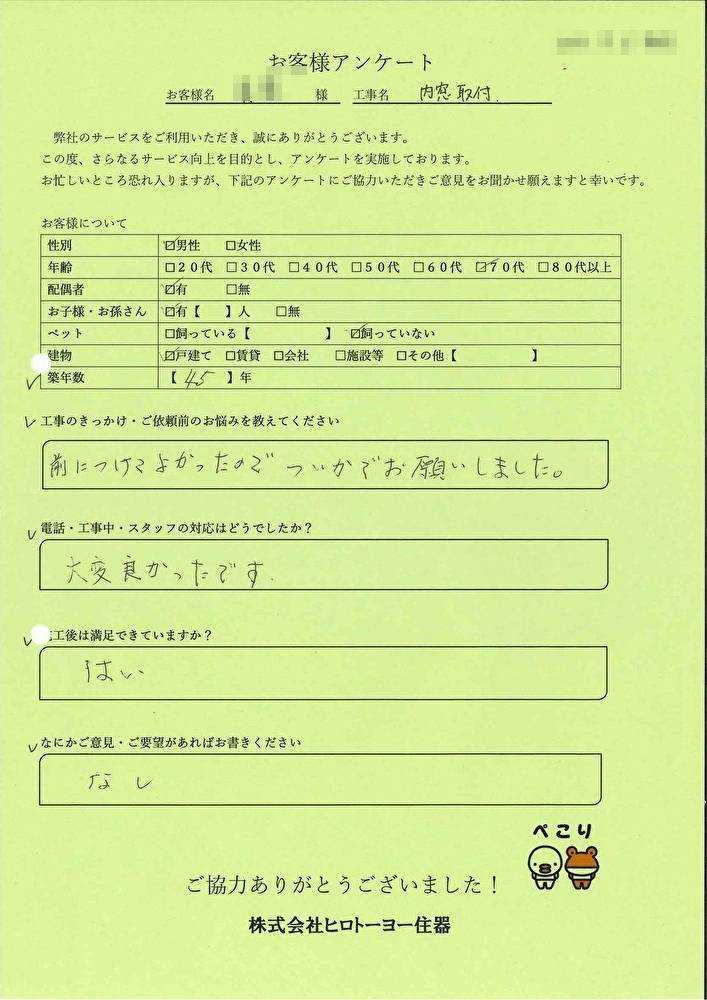 お客様アンケート
お客様名 様 工事名 内窓取付.
弊社のサービスをご利用いただき、誠にありがとうございます。
この度、さらなるサービス向上を目的とし、アンケートを実施しております。
お忙しいところ恐れ入りますが、下記のアンケートにご協力いただきご意見をお聞かせ願えますと幸いです。
お客様について
性別 ☑男性 □女性
年齢 □20代 □30代 □40代 □50代 □60代 ☑70代 □80代以上
配偶者 ☑有 □無
お子様・お孫さん ☑有【 】人 □無
ペット □飼っている【 】 ☑飼っていない
建物 ☑戸建て □賃貸 □会社 □施設等 □その他【 】
✓ 築年数 【 45 】年
✓ 工事のきっかけ・ご依頼前のお悩みを教えてください
前につけてよかったので ついかでお願いしました。
✓ 電話・工事中・スタッフの対応はどうでしたか？
大変良かったです.
✓ 工後は満足できていますか？
はい
✓ なにかご意見・ご要望があればお書きください
なし
ぺこり
ご協力ありがとうございました！
株式会社ヒロトーヨー住器